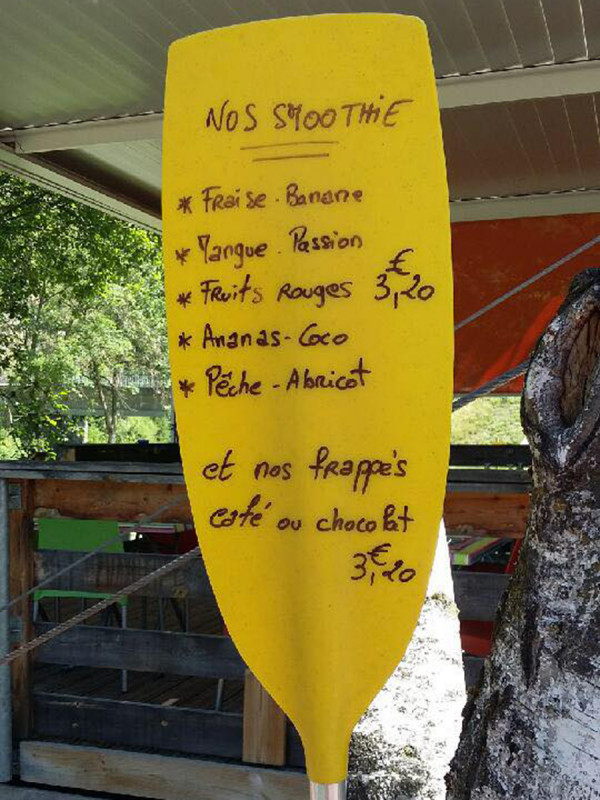 NOS SMOOTHIE
* Fraise - Banane
* Mangue - Passion
* Fruits Rouges 3,20 €
* Ananas - Coco
* Pêche - Abricot
et nos frappés
café ou chocolat
3,20 €